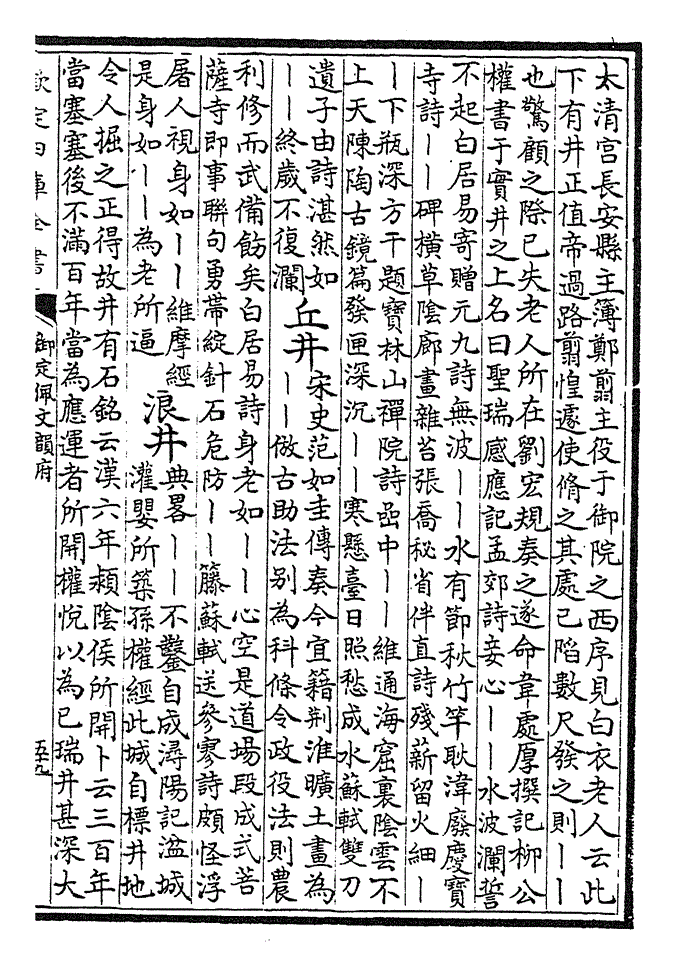 太清宮長安縣主簿鄭翦主役于御院之西序見白衣老人云此
下有井正值帝過路翦惶遽使脩之其處已陷數尺發之則｜｜
也驚顧之際已失老人所在劉宏規奏之遂命韋處厚撰記柳公
權書于實井之上名曰聖瑞感應記孟郊詩妾心｜｜水波瀾誓
不起白居易寄贈元九詩無波｜｜水有節秋竹竿耿湋廢慶寶
寺詩｜｜碑橫草陰廊畫雜苔張喬秘省伴直詩殘薪留火細｜
｜下瓶深方干題寶林山禪院詩嵒中｜｜維通海窟裏陰雲不
上天陳陶古鏡篇發匣深沉｜｜寒懸臺日照愁成水蘇軾雙刀
遺子由詩湛然如
｜｜終歲不復瀾
丘井
宋史范如圭傳奏今宜籍荆淮曠土畫為
｜｜倣古助法别為科條令政役法則農
利修而武備飭矣白居易詩身老如｜｜心空是道場段成式菩
薩寺即事聯句勇帶綻針石危防｜｜籐蘇軾送參寥詩頗怪浮
屠人視身如｜｜維摩經
是身如｜｜為老所逼
浪井
典畧｜｜不鑿自成潯陽記湓城
灌嬰所築孫權經此城自標井地
令人掘之正得故井有石銘云漢六年頴陰侯所開卜云三百年
當塞塞後不滿百年當為應運者所開權悅以為已瑞井甚深大
欽定四庫全書
御定佩文韻府